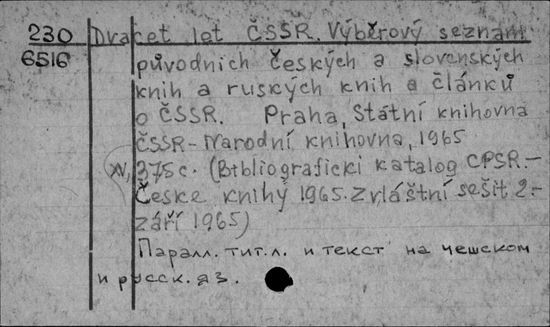 230 Dvacet let ČSSR. Výběrový seznam
6516 původních českých a slovenských
knih a ruských knih a článků
o ČSSR. Praha, Státní knihovna
ČSSR-Národní knihovna, 1965
XV, 375 с. (Bibliograficki katalog ČPSR.-
České knihy 1965. Zvláštní sešit 2-
září 1965)
Паралл. тит. л. и текст на чешском
и русск. яз.